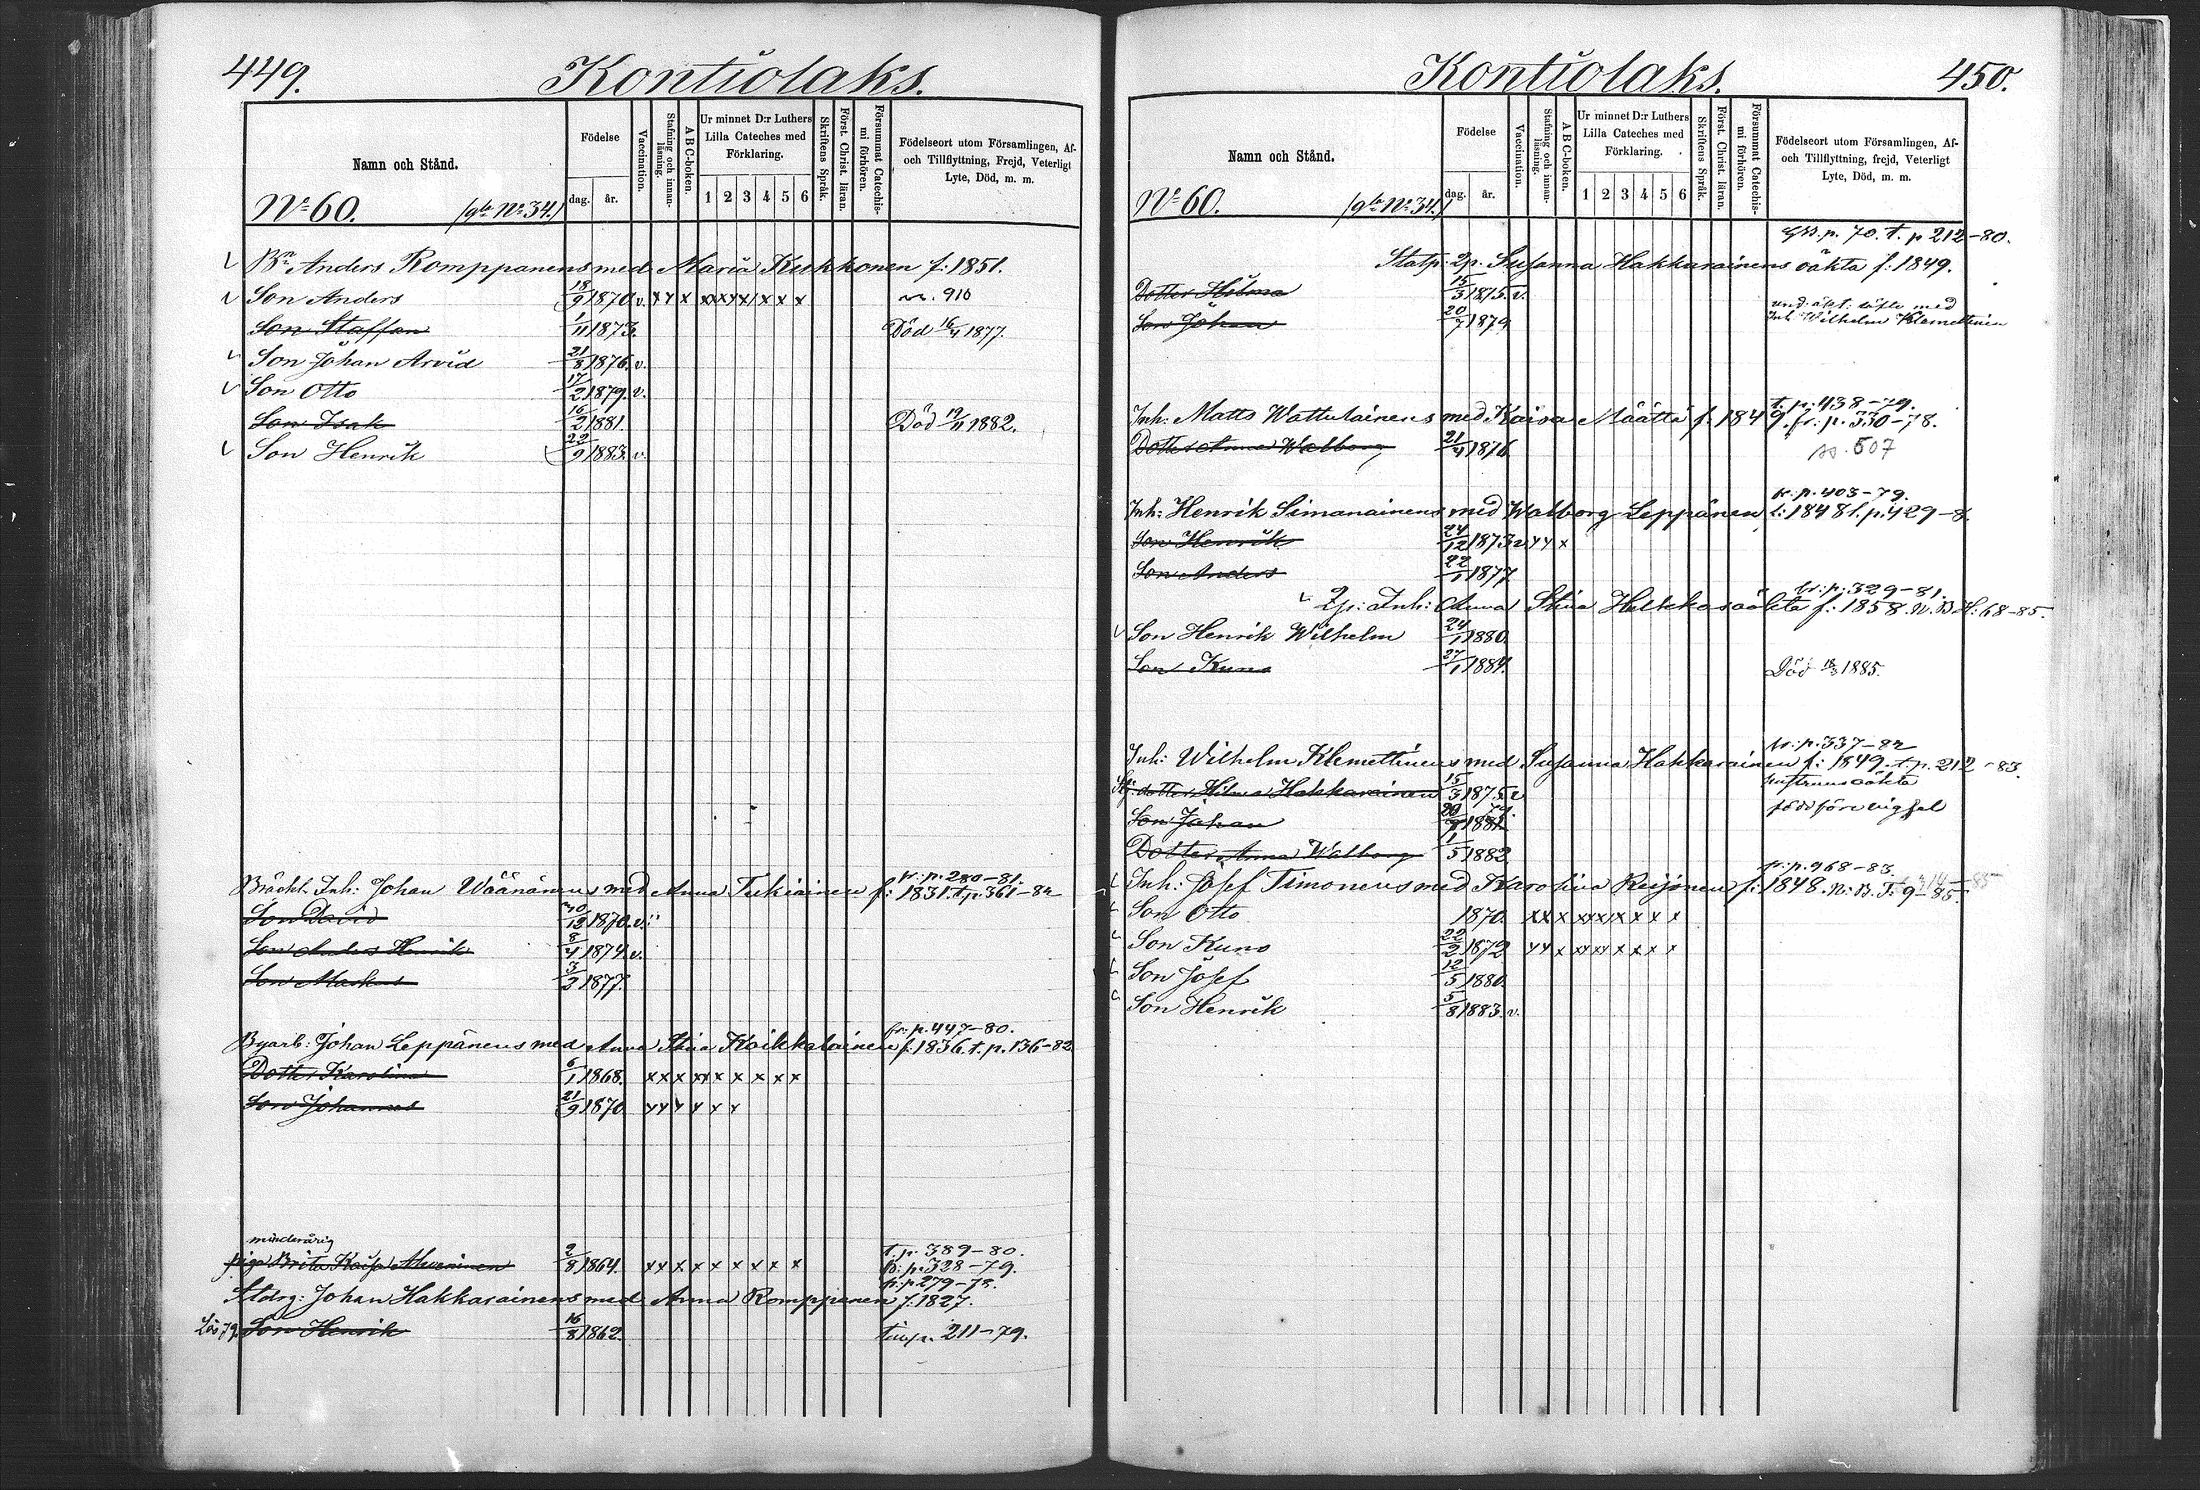 449.
Kontiolaks.
Namn och Stånd.
Födelse
dag. år.
Vaccination.
Stafning och innan-läsning.
A B C-boken.
Ur minnet D:r Luthers Lilla Cateches med Förklaring.
1 2 3 4 5 6
Skriftens Språk.
Först. Christ. läran.
Försummat Catechis-mi förhören.
Födelseort utom Församlingen, Af- och Tillflyttning, Frejd, Veterligt Lyte, Död, m. m.
No 60. /gla No 34./
Bn Anders Romppanens med Maria Kukkonen f: 1851.
Son Anders 18/9 1870 v. x x x x x x x x x x n. 910
Son Staffan 1/11 1873. Död 16/4 1877.
Son Johan Arvid 21/8 1876. v.
Son Otto 17/2 1879. v.
Son Isak 16/2 1881. Död 19/11 1882.
Son Henrik 22/9 1883. v.
fr: p. 280-81.
Inh: Johan Wäänänens med Anna Tukiainen f: 1831. t. p. 361-82
Son David 1870. v.
Son Anders Henrik 8/4 1874 v.
Son Markus 3/3 1877.
fr: p. 447-80.
Byarb: Johan Leppänens med Anna Stina Koikkalainen f: 1836. t. p. 136-82.
Dotter Karolina 6/1 1868. x x x x x x x x x
Son Johannes 21/9 1870 x x x x x x
minderårig
t. p. 389-80.
piga Brita Kaisa 2/8 1864. x x x x x x x x x fr: p. 328-79.
fr: p. 279-78.
Johan Hakkarainens med Anna Romppanen f. 1827.
Son Henrik 16/8 1862. 211-79.
450.
Kontiolaks.
Namn och Stånd.
Födelse
dag. år.
Vaccination.
Stafning och innan-läsning.
A B C-boken.
Ur minnet D:r Luthers Lilla Cateches med Förklaring.
1 2 3 4 5 6
Skriftens Språk.
Först. Christ. läran.
Försummat Catechis-mi förhören.
Födelseort utom Församlingen, Af- och Tillflyttning, frejd, Veterligt Lyte, Död, m. m.
No 60. /gla No 34./
p. 70. t. p 212-80.
Statp: 2p. Susanna Hakkarainens oäkta f: 1849.
Dotter Hilma 15/3 1875. v.
Son Johan 20/7 1879 med
Inh Wilhelm Klemettinen
t. p. 438-79.
Inh: Matts Wattulainens med Kaisa Määttä f: 1849. fr: p. 330-78.
Dotter Anna Walborg 21/4 1876. 507
fr. p. 403-79.
Inh: Henrik Simanainens med Walborg Leppänen f: 1848 t. p. 429-8.
Son Henrik 24/12 1873 v x x x
Son Anders 22/1 1877
fr: p: 329-81.
2p: Inh: Anna Stina oäkta f: 1858. N. B. H: 68-85.
Son Henrik Wilhelm 24/1 1880.
Son Kuno 27/1 1884. Död 1885.
fr: p. 337-82
Inh: Wilhelm Klemettinens med Susanna Hakkarainen f: 1849. t. p. 212-83.
dotter Hilma Hakkarainen 15/3 1875. v hustruns oäkta
Son Johan 1881. född före vigsel
Dotter Anna Walborg 1/5 1882
fr: p. 968-83.
Inh: Josef Timonens med Karolina Reijonen f: 1848. N. B. T. 9-85.
Son Otto 1870. x x x x x x x x x x
Son Kuno 22/2 1872 x x x x x x x x x x
Son Josef 12/5 1880.
Son Henrik 5/8 1883. v.